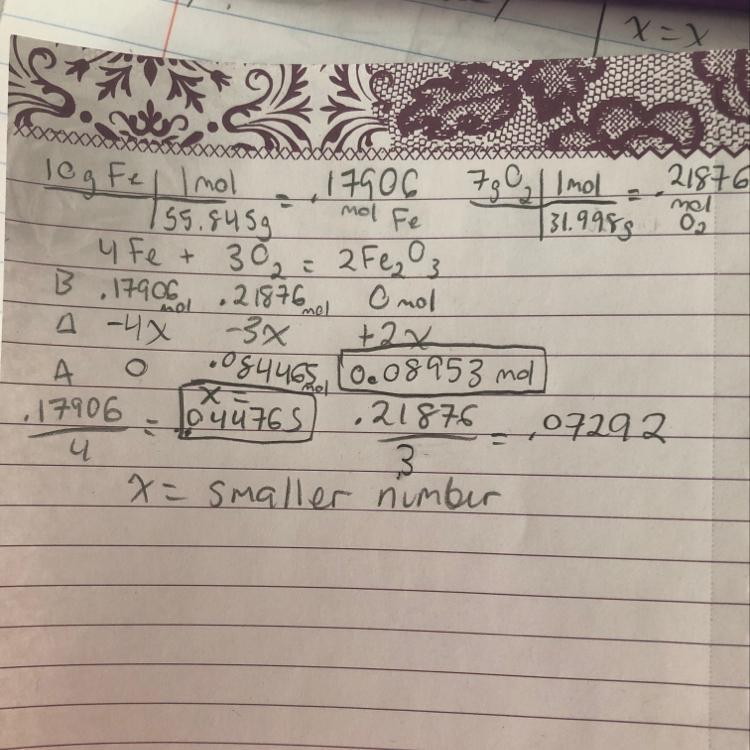 x = x
10g Fe | 1mol = .17906 mol Fe 7g O₂ | 1mol = .21876 mol O₂
55.845g 31.998g
4Fe + 3O₂ = 2Fe₂O₃
B .17906 mol .21876 mol 0 mol
Δ -4x -3x +2x
A 0 .084465 mol 0.08953 mol
.17906 / 4 = x = .044765 .21876 / 3 = .07292
x = smaller number